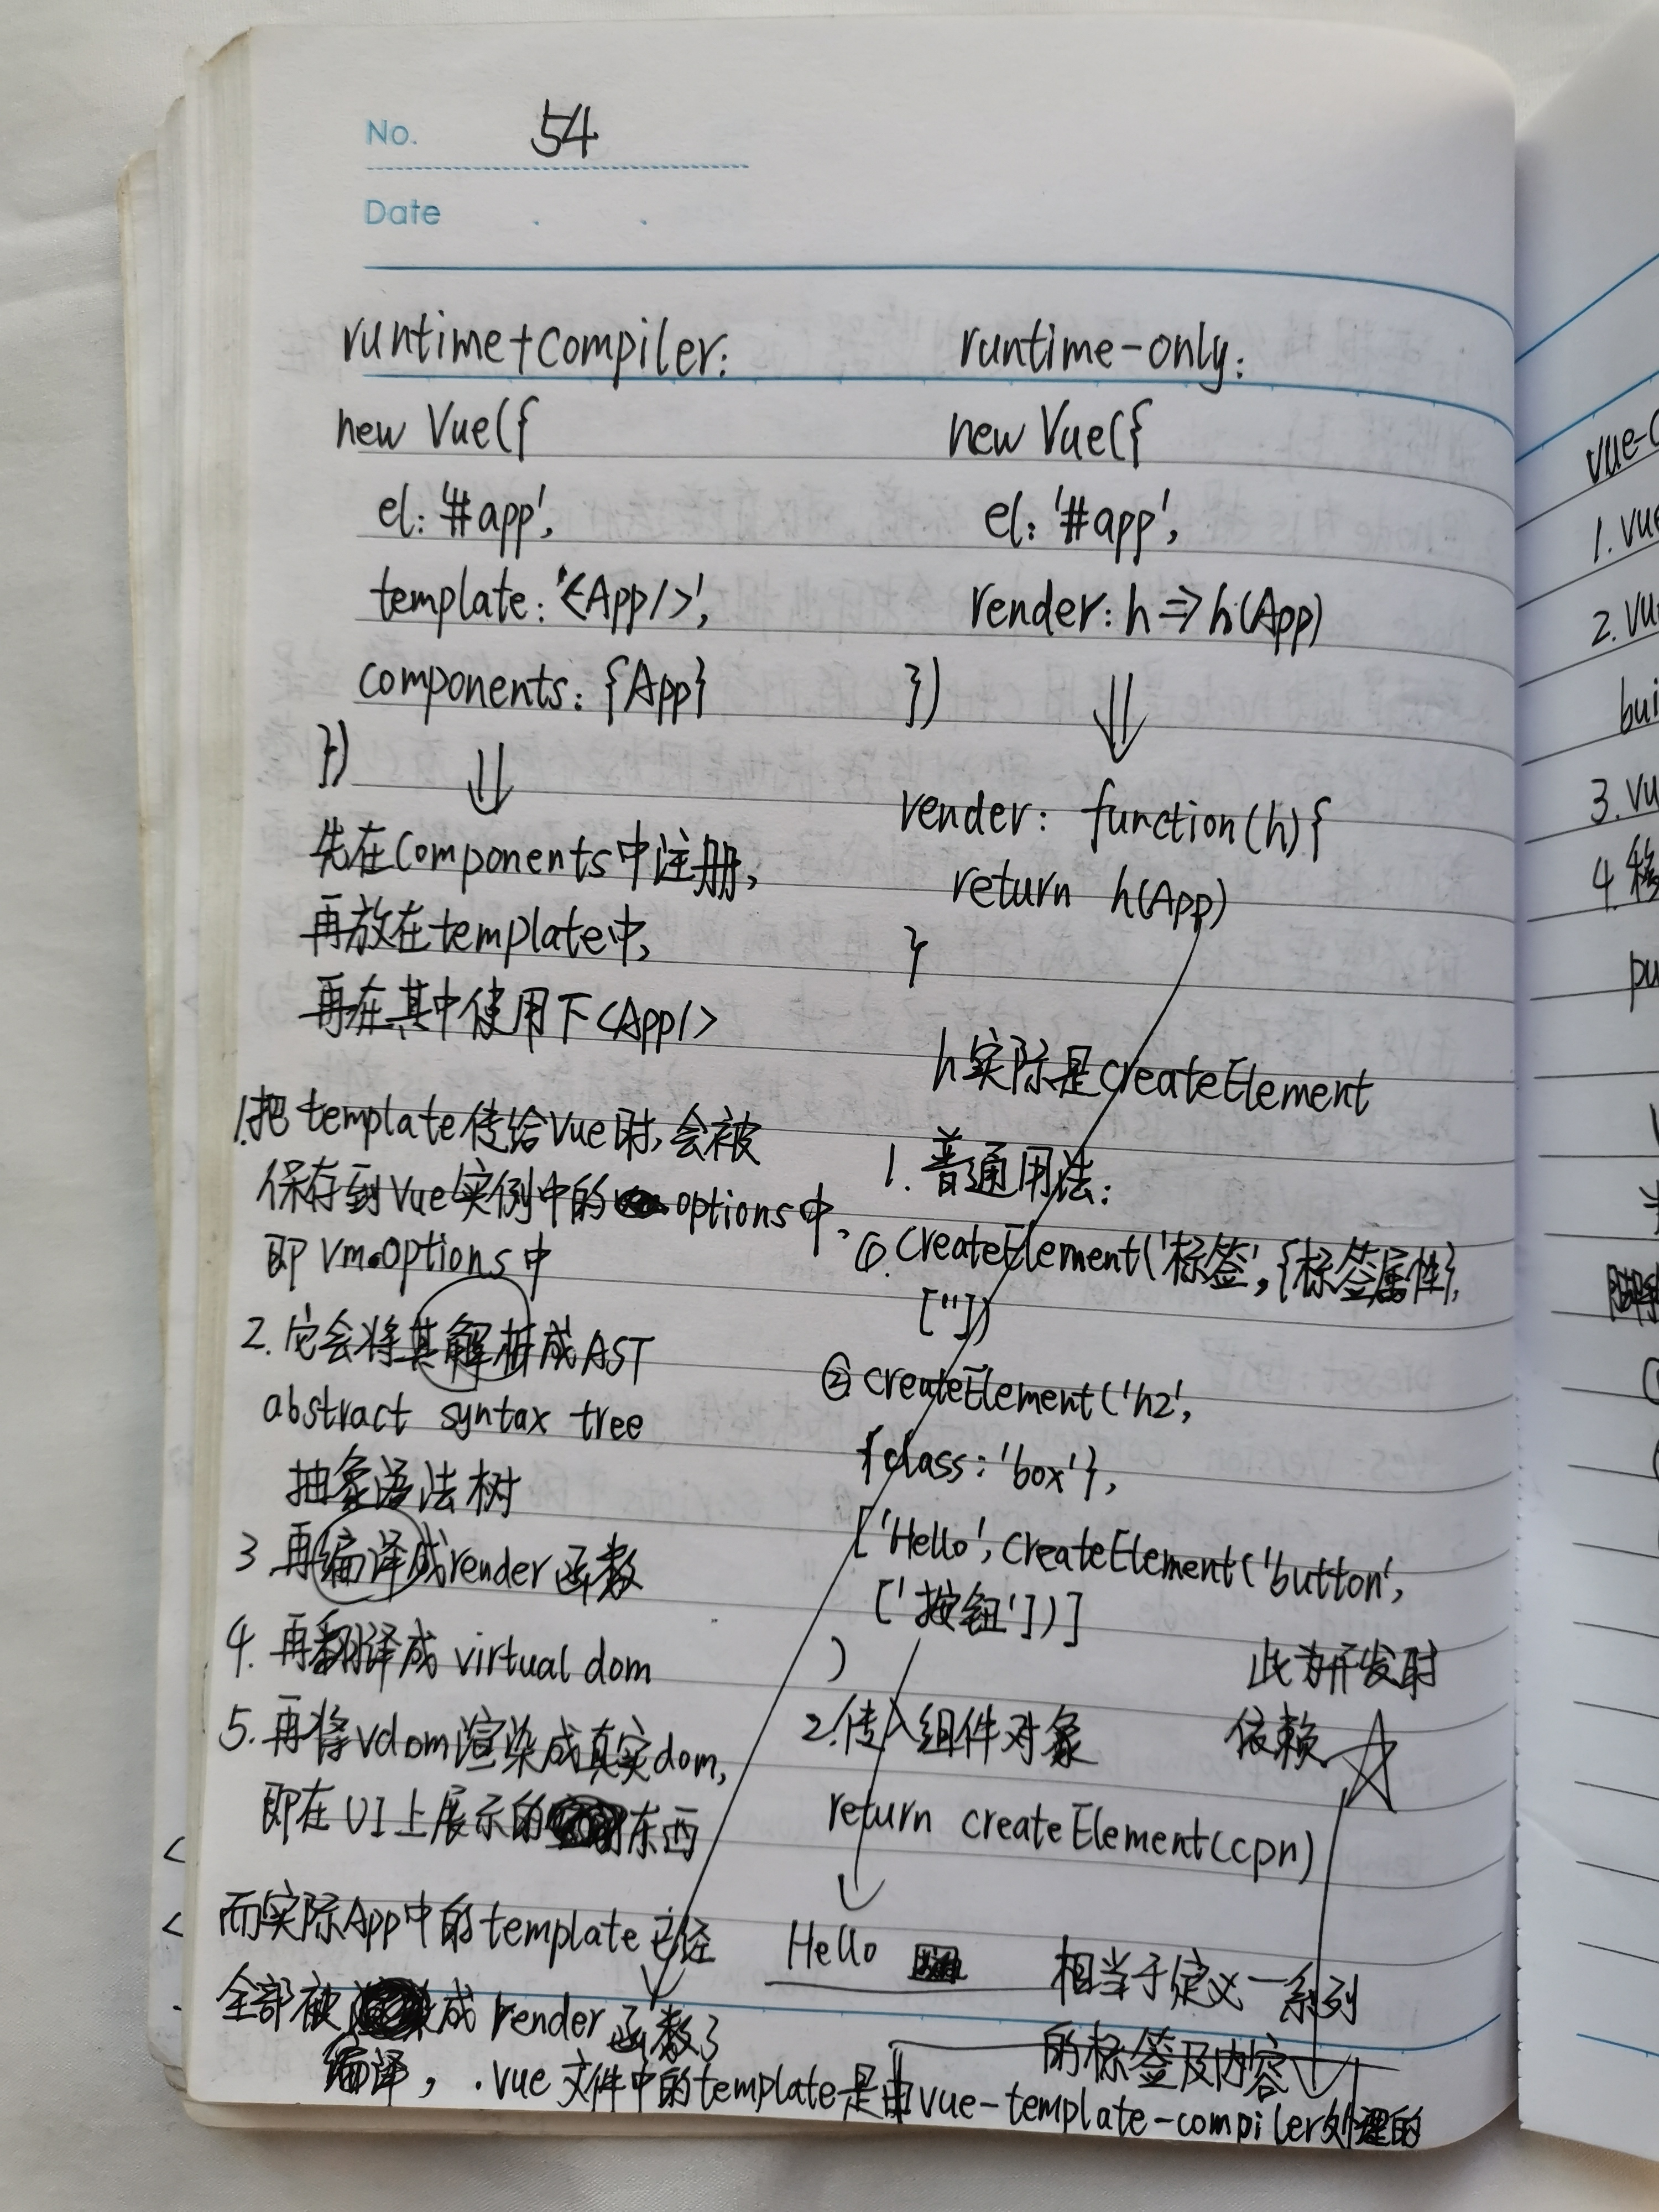 No. 54
Date
runtime+compiler:
new Vue({
el: '#app',
template: '<App/>',
components: {App}
})
先在components中注册,
再放在template中,
再在其中使用下<App/>
1.把template传给Vue时,会被
保存到Vue实例中的options中、
即vm.options中
2.它会将其解析成AST
abstract syntax tree
抽象语法树
3 再编译成render函数
4.再翻译成virtual dom
5.再将vdom渲染成真实dom,
即在UI上展示的东西
而实际App中的template已经
全部被成render函数了
编译, .vue文件中的template是由vue-template-compiler处理的
runtime-only:
new Vue({
el: '#app',
render: h => h(App)
})
render: function(h){
return h(App)
}
h实际是createElement
1.普通用法:
①.createElement('标签',{标签属性},
[''])
② createElement('h2',
{class:'box'},
['Hello',createElement('button',
['按钮'])]
)
2.传入组件对象
return createElement(cpn)
Hello
此为开发时
依赖
相当于定义一系列
的标签及内容
vue-
1.vue
2.vu
bui
3.vu
4.移
pu